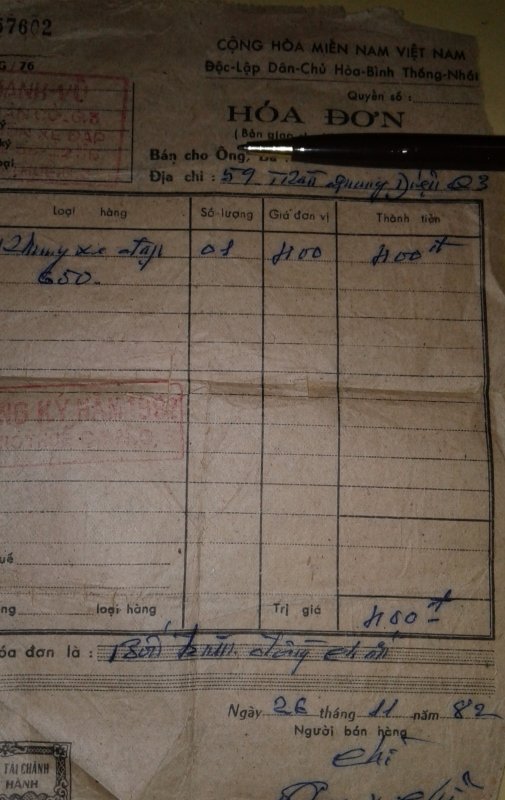 57602
CỘNG HÒA MIỀN NAM VIỆT NAM
G / 76
Độc-Lập Dân-Chủ Hòa-Bình Thống-Nhất
Quyển số :
HÓA ĐƠN
Bán cho Ông,
Địa chỉ : 59 Trần Quang Diệu Q3
Loại hàng Số lượng Giá đơn vị Thành tiền
Khung xe đạp 01 400 400đ
650.
uế
ng loại hàng Trị giá 400đ
óa đơn là : Bốn trăm đồng chẵn
Ngày 26 tháng 11 năm 82
Người bán hàng
Chi
TÀI CHÁNH
HÀNH